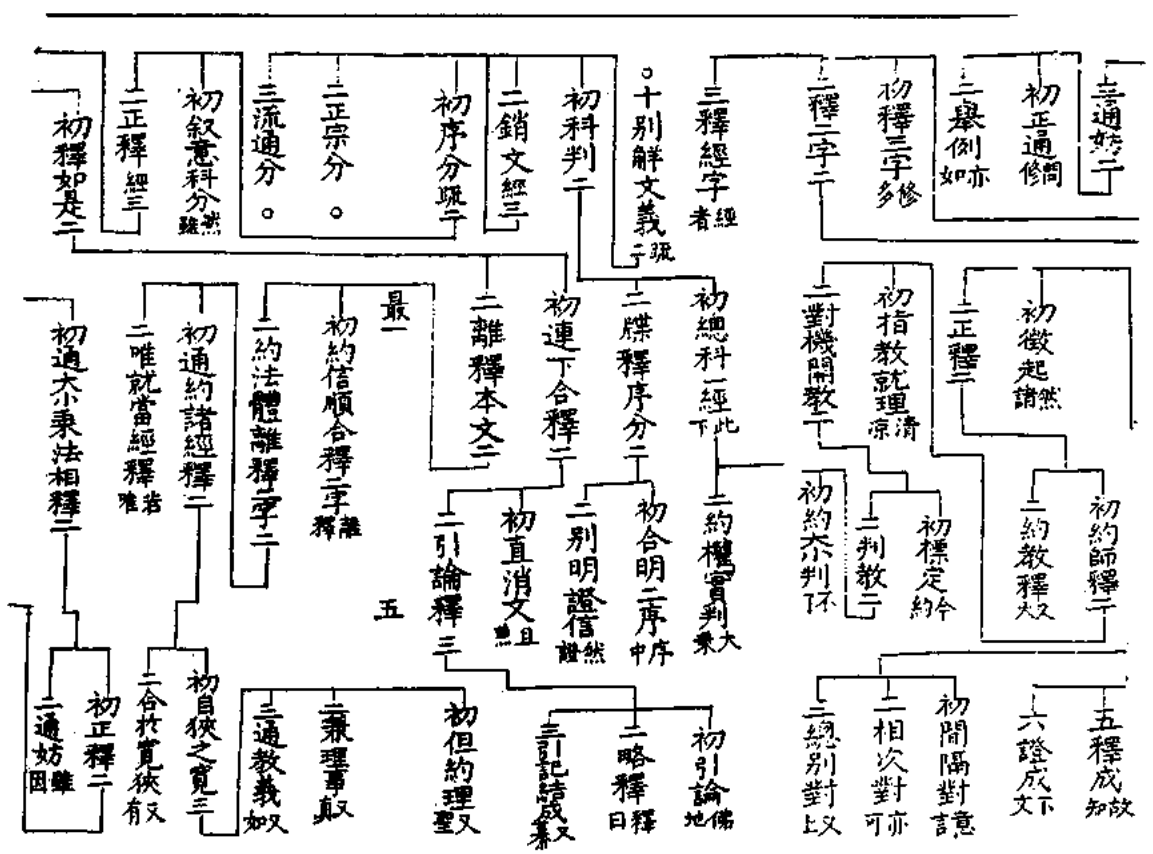 三通妨二
初正通問修
二舉例亦如
初釋三字修多
二釋二字二
三釋經字經者
○十別解文義疏二
初科判二
二銷文經三
初序分疏二
二正宗分○
三流通分○
初叙意科分然雖
二正釋經三
初釋如是二
初徵起然諸
二正釋二
初指教就理清凉
二對機開教二
初總科一經此下
二牒釋序分二
初連下合釋二
二離釋本文二
最一
初約信順合釋二字離釋
二約法體離釋二字二
初通約諸經釋二
二唯就當經釋若唯
初通大小乘法相釋二
初約師釋二
二約教釋又
初標定今約
二判教二
初約大小判不
二約權實判大乘
初合明二序序中
二別明證信然證
初直消文且
二引論釋三
五
五釋成故知
六證成下文
初間隔對意言
二相次對亦可
三總別對又上
初引論佛地
二略釋釋曰
三引記結成又
初但約理又聖
二兼理事又真
三通教義又如
初自狹之寬三
二合於寬狹又有
初正釋二
二通妨雖因